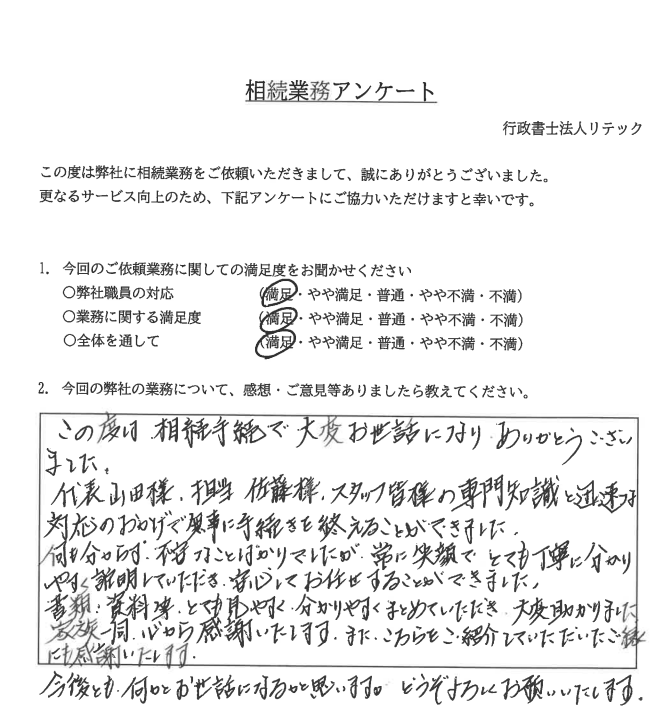 相続業務アンケート
行政書士法人リテック
この度は弊社に相続業務をご依頼いただきまして、誠にありがとうございました。
更なるサービス向上のため、下記アンケートにご協力いただけますと幸いです。
1. 今回のご依頼業務に関しての満足度をお聞かせください
○弊社職員の対応 (満足・やや満足・普通・やや不満・不満)
○業務に関する満足度 (満足・やや満足・普通・やや不満・不満)
○全体を通して (満足・やや満足・普通・やや不満・不満)
2. 今回の弊社の業務について、感想・ご意見等ありましたら教えてください。
この度は 相続手続で 大変お世話になり、ありがとうござい
ました。
代表 山田様、担当 佐藤様、スタッフ皆様の専門知識と迅速な
対応のおかげで無事に手続きを終えることができました。
何も分からず、不安なことばかりでしたが、常に笑顔で とても丁寧に分かり
やすく説明していただき、安心してお任せすることができました。
書類・資料等、とても見やすく、分かりやすくまとめていただき、大変助かりました
家族一同、心から感謝いたします。また、こちらをご紹介していただいたご縁
にも感謝いたします。
今後とも、何かとお世話になるかと思います。どうぞよろしくお願いいたします。